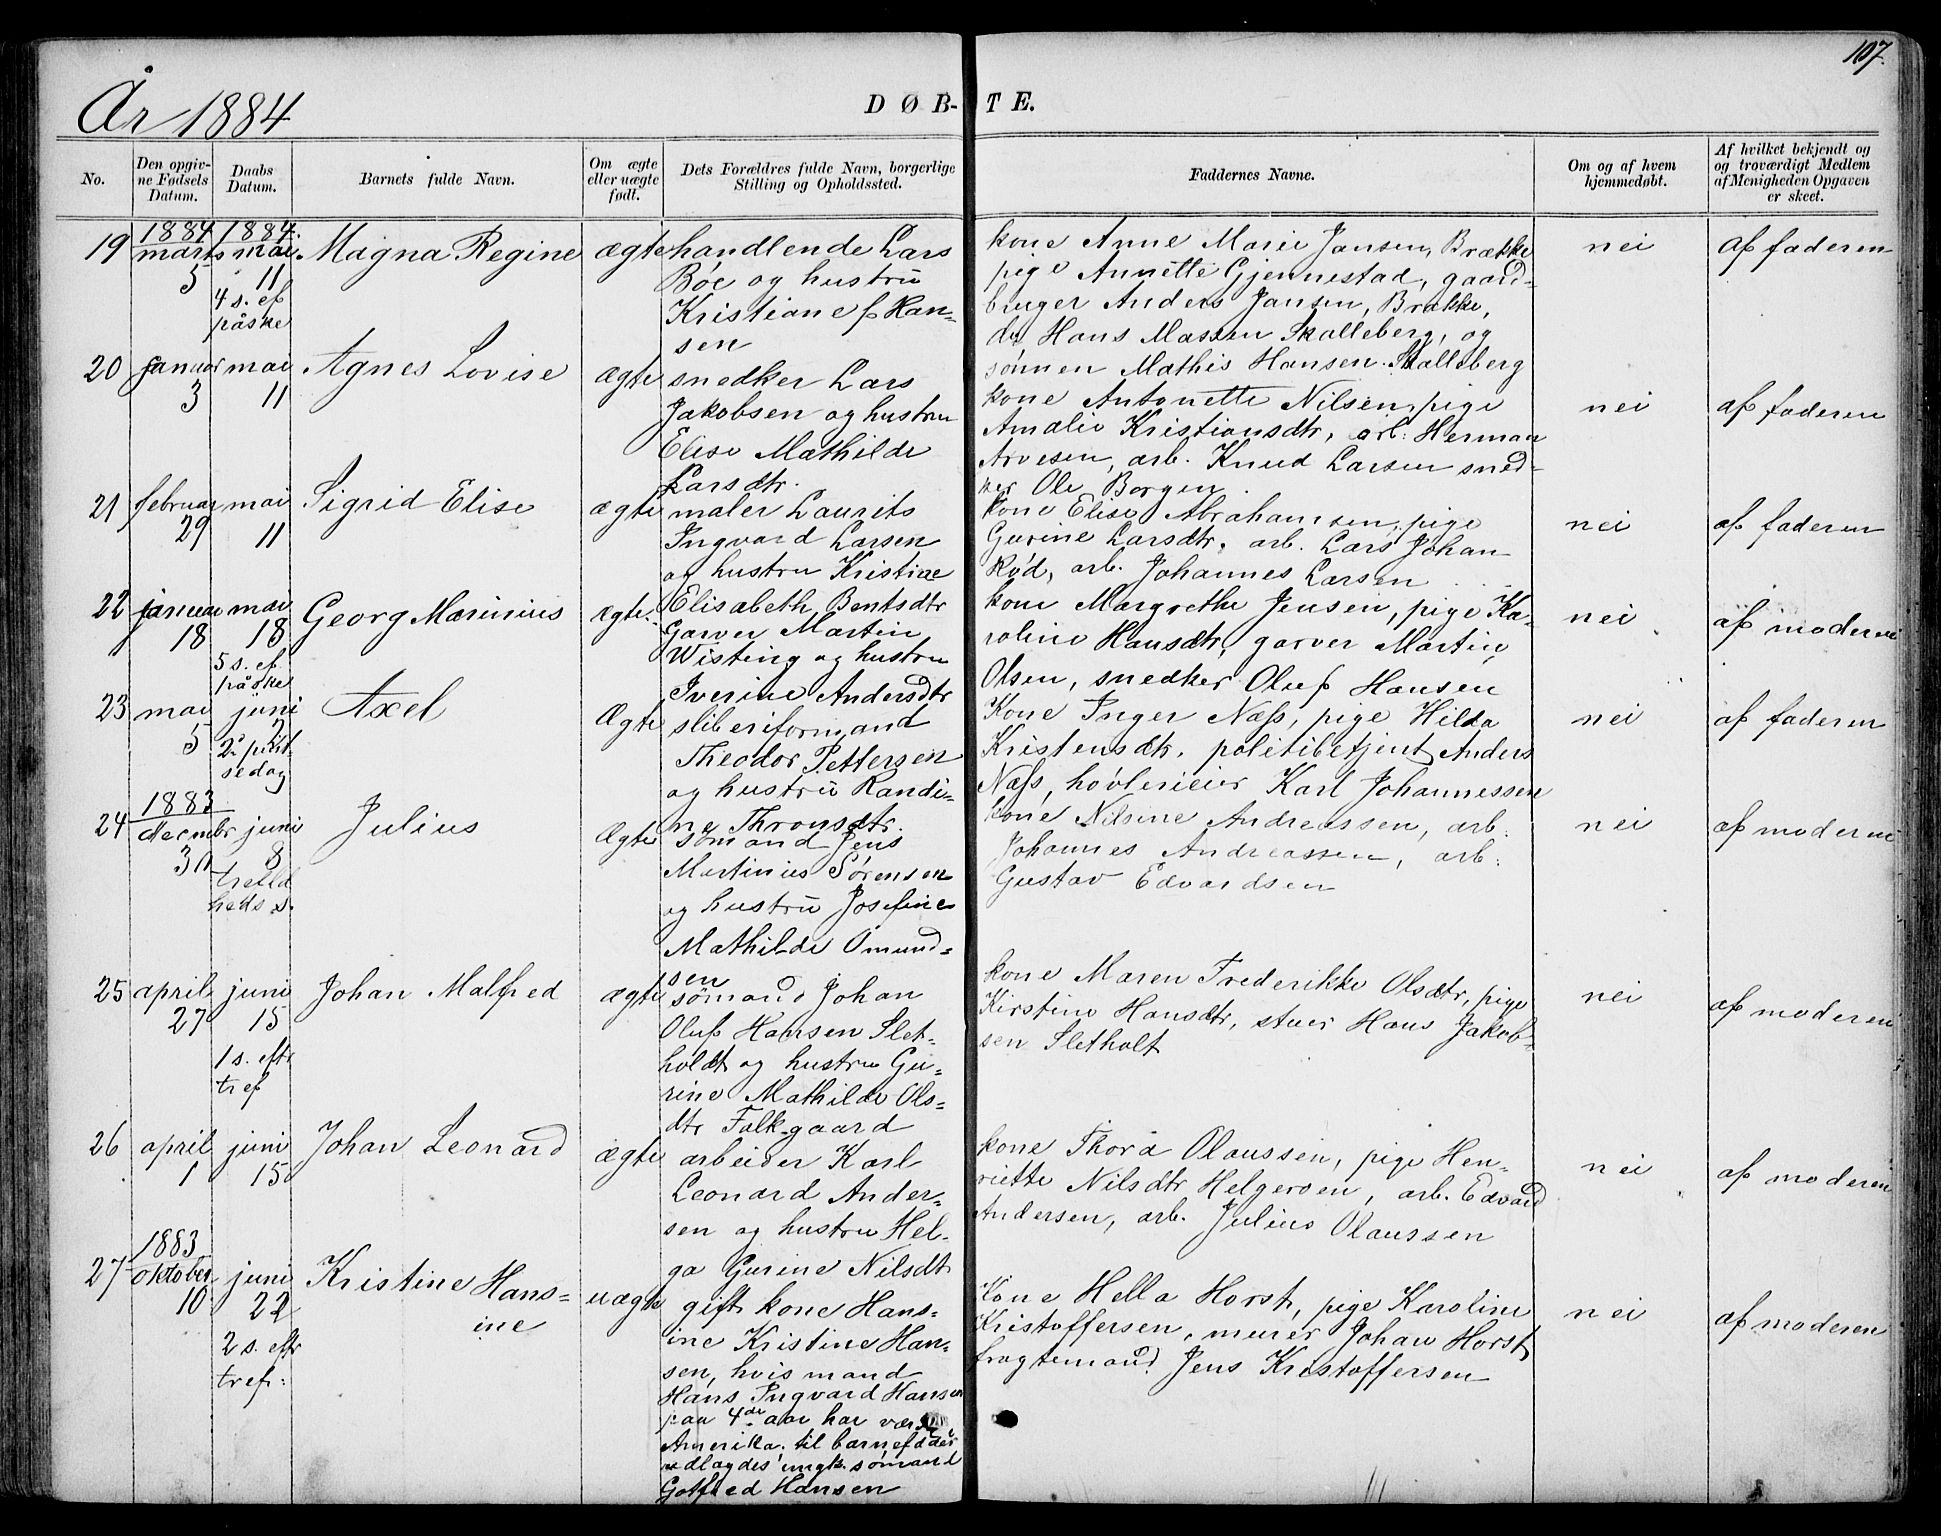 107.
År 1884
DØB-TE.
No.
Den opgivne Fødsels Datum.
Daabs Datum.
Barnets fulde Navn.
Om ægte eller uægte født.
Dets Forældres fulde Navn, borgerlige Stilling og Opholdssted.
Faddernes Navne.
Om og af hvem hjemmedøbt.
Af hvilket bekjendt og og troværdigt Medlem af Menigheden Opgaven er skeet.
19
1884
marts
5
1884.
mai
11
4 s. ef
påske
Magna Regine
ægte
handlende Lars
Bøe og hustru
Kristiane f Han-
sen
kone Anne Marie Jansen, Brække
pige Annette Gjennestad, gaard-
bruger Anders Jansen, Brække,
do Hans Massen Skalleberg, og
sønnen Mathis Hansen Skalleberg
nei
af faderen
20
januar
3
mai
11
Agnes Lovise
ægte
snedker Lars
Jakobsen og hustru
Elise Mathilde
Larsdtr.
kone Antonette Nilsen, pige
Amalie Kristiansdtr, arb. Herman
Arvesen, arb. Knud Larsen sned-
ker Ole Borgen
nei
af faderen
21
februar
29
mai
11
Sigrid Elise
ægte
maler Laurits
Ingvard Larsen
og hustru Kristine
Elisabeth Bentsdtr
kone Elise Abrahamsen, pige
Gurine Larsdtr, arb. Lars Johan
Rød, arb. Johannes Larsen
nei
af faderen
22
januar
18
mai
18
5 s. ef
påske
Georg Marinius
ægte
Garver Martin
Wisting og hustru
Iverine Andersdtr
kone Margrethe Jensen, pige Ka-
roline Hansdtr, garver Martin
Olsen, snedker Oluf Hansen
nei
af moderen
23
mai
5
juni
2
2. pint
sedag
Axel
Ægte
sliberiformand
Theodor Pettersen
og hustru Randi-
ne Thronsdtr.
Kone Inger Næss, pige Hilda
Kristensdtr. politibetjent Anders
Næss, høvlerieier Karl Johannessen
nei
af faderen
24
1883
decembr
30
juni
8
trefld
heds s.
Julius
Ægte
sømand Jens
Martinius Sørensen
og hustru Josefine
Mathilde Omund-
sen
kone Nilsine Andreassen, arb.
Johannes Andreassen, arb.
Gustav Edvardsen
nei
af moderen
25
april
27
juni
15
1 s. eftr
tref
Johan Malfred
ægte
sømand Johan
Oluf Hansen Slet-
holdt og hustru Gu-
rine Mathilde Ols-
dtr Falkgaard
kone Maren Frederikke Olsdtr, pige
Kirstine Hansdtr, stuer Hans Jakob-
sen Sletholt
nei
af moderen
26
april
1
juni
15
Johan Leonard
ægte
arbeider Karl
Leonard Ander-
sen og hustru Hel-
ga Gurine Nilsdt
kone Thora Olaussen, pige Hen-
riette Nilsdtr Helgeroen, arb. Edvard
Andersen, arb. Julius Olaussen
nei
af moderen
27
1883
oktober
10
juni
22
2 s. eftr
tref:
Kristine Hans-
ine
uægte
gift kone Hans-
ine Kristine Han-
sen, hvis mand
Hans Ingvard Hansen
paa 4de aar har været
Amerika. til barnefader
udlagdes ungk. sømand
Gotfred Hansen
Kone Hella Horst, pige Karoline
Kristoffersen, murer Johan Horst
fragtemand Jens Kristoffersen
nei
af moderen